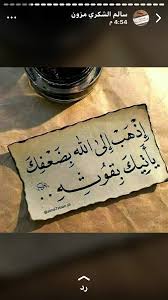 سالم الشكري مزون
4:54 م
إذهَبْ إلى اللهِ بِضَعفِكَ
يأتيكَ بِقُوَّتِهِ ..
رد